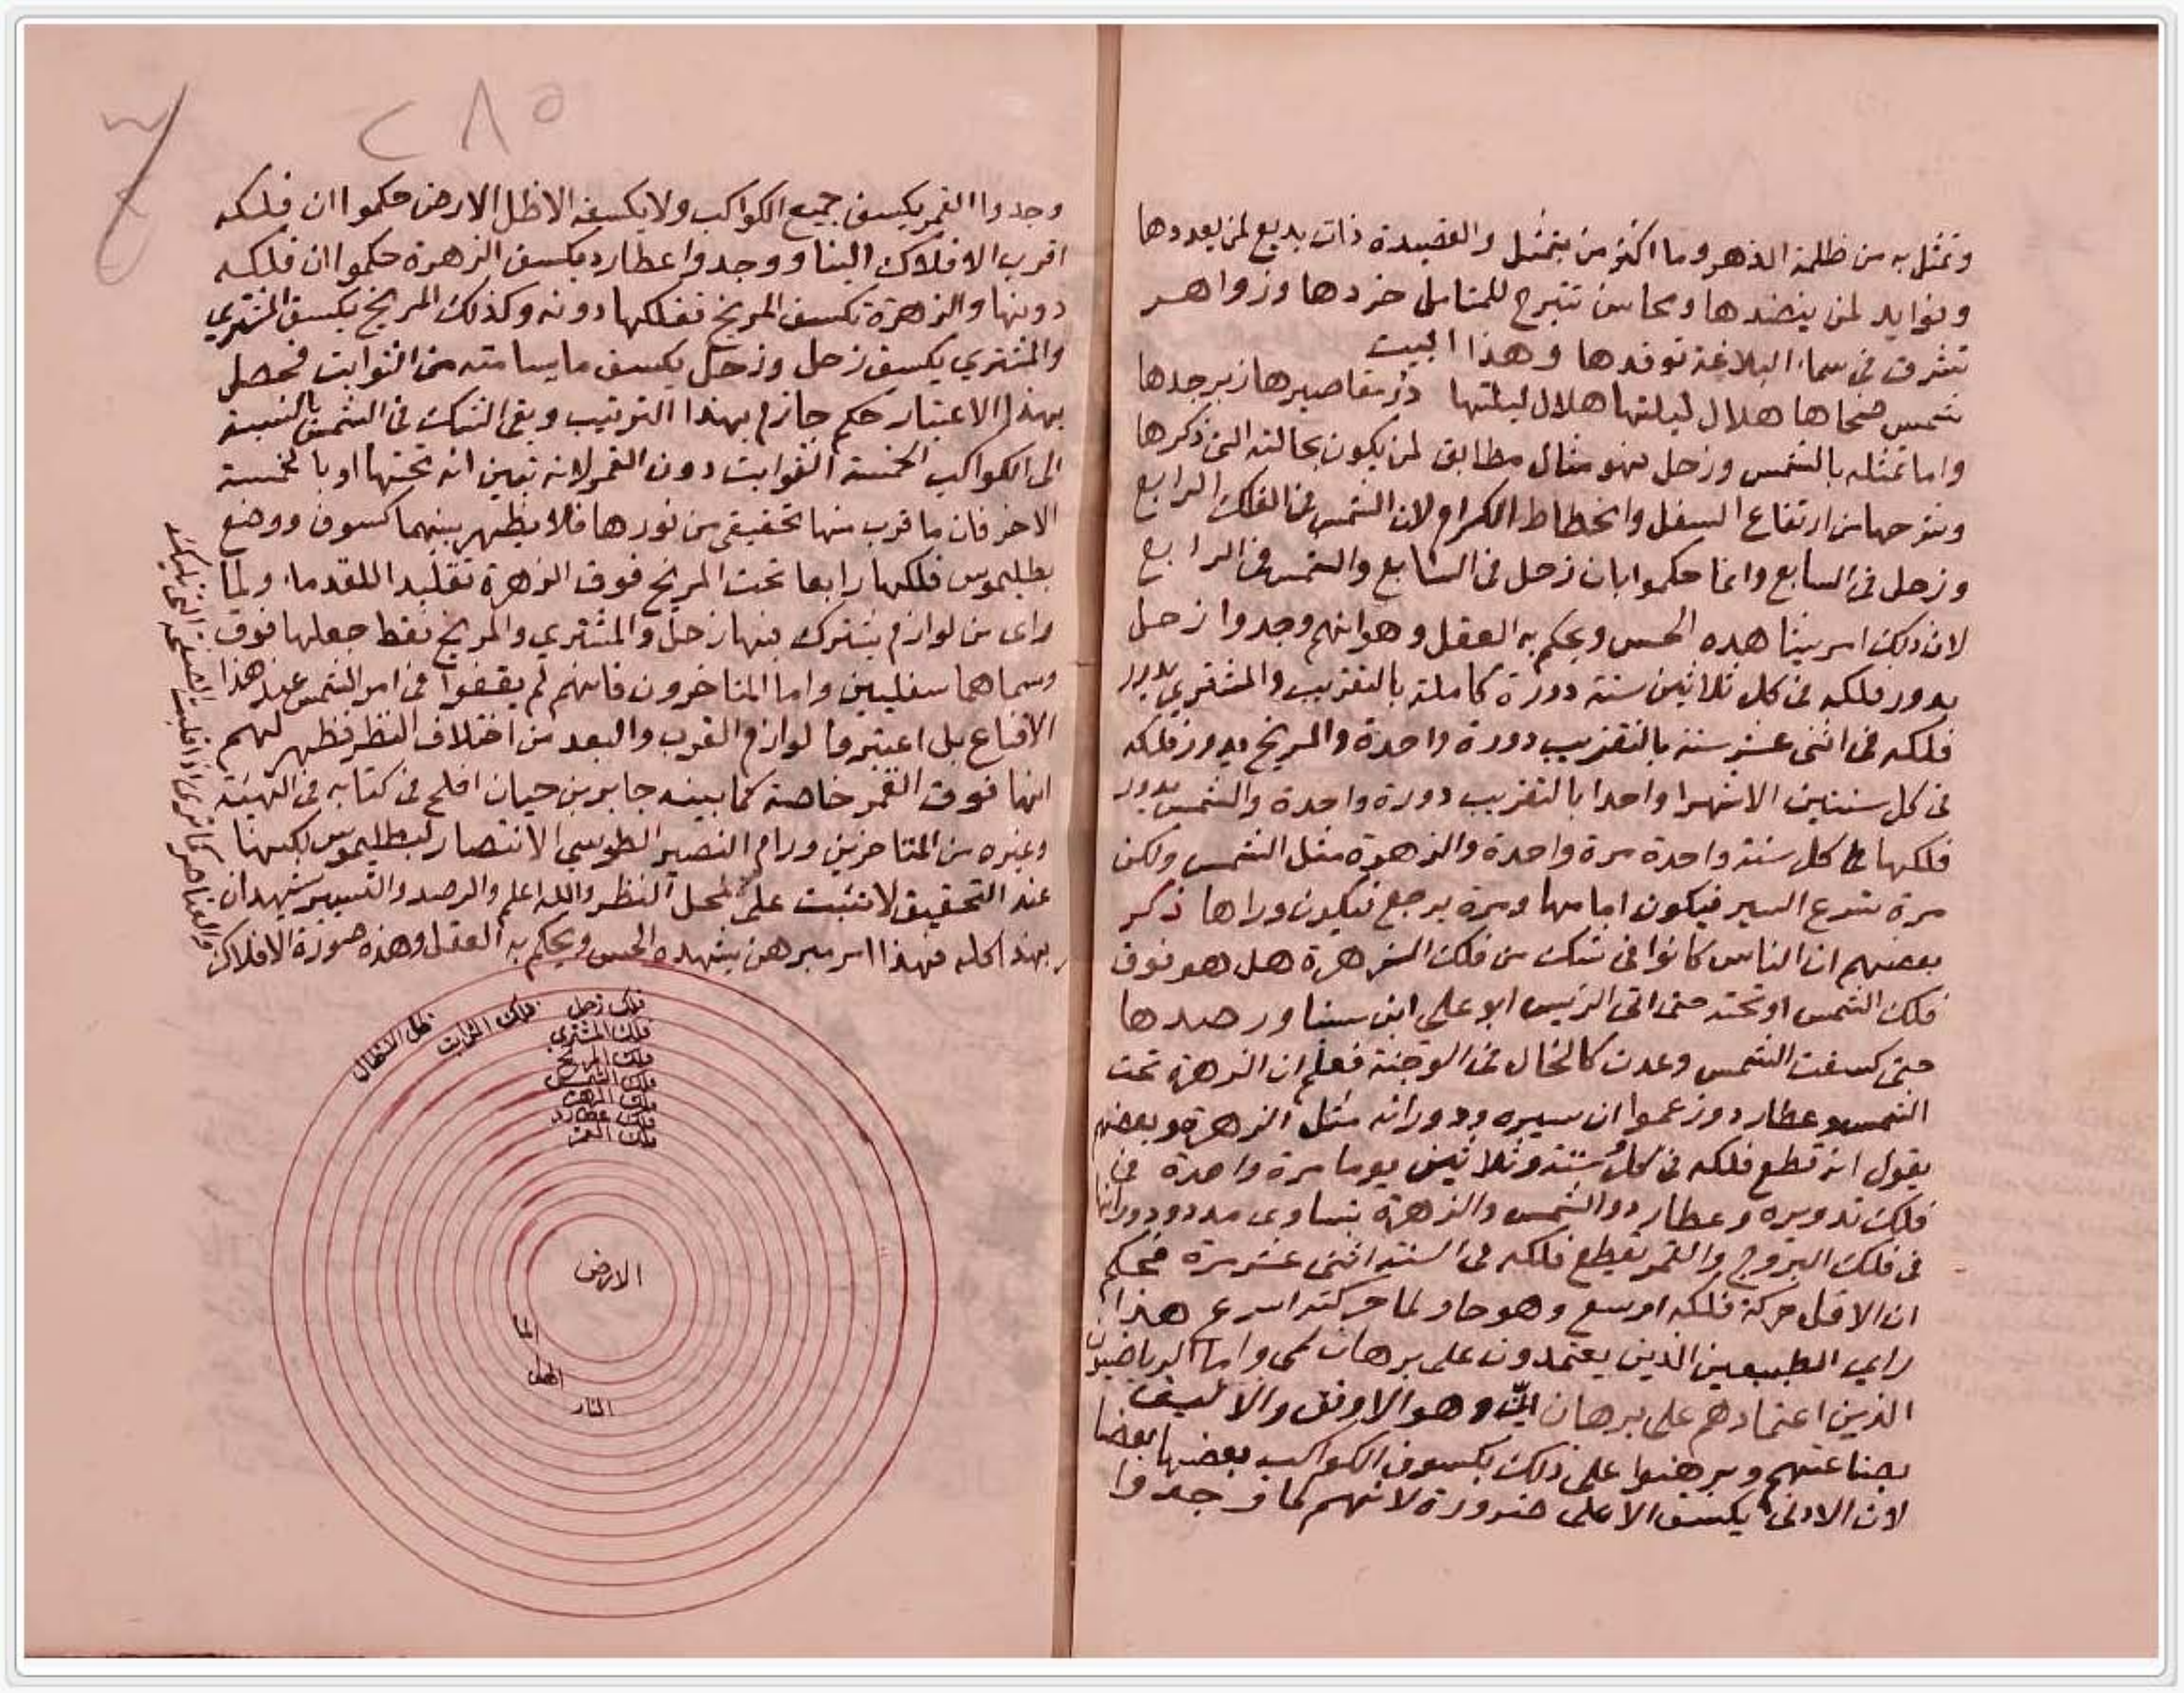 وتمثل به من ظلمة الدهر وما اكثر من يتمثل والقصيدة ذات بديع لمن يعددها
وفوايد لمن ينضدها ومحاسن تتبرج للمتامل خردها وزواهر
تشرق في سماء البلاغة توقدها وهذا البيت
شمس ضحاها هلال ليلتها هلال ليلتها در مقاصيرها زبرجدها
واما تمثله بالشمس وزحل فهو مثال مطابق لمن يكون بحالته التي ذكرها
من ارتفاع السفل وانحطاط الكرام لان الشمس في الفلك الرابع
وزحل في السابع وانما حكموا بان زحل في السابع والشمس في الرابع
لان ذلك امر يشاهده الحس ويحكم به العقل وهو انهم وجدوا زحل
يدور فلكه في كل ثلاثين سنة دورة كاملة بالتقريب والمشتري يدور
فلكه في اثنى عشر سنة بالتقريب دورة واحدة والمريخ يدور فلكه
في كل سنتين الا شهرا واحدا بالتقريب دورة واحدة والشمس يدور
فلكها كل سنة واحدة مرة واحدة والزهرة مثل الشمس ولكن
مرة تسرع السير فيكون امامها ومرة يرجع فيكون وراها ذكر
بعضهم ان الناس كانوا في شك من فلك الزهرة هل هو فوق
فلك الشمس او تحته حتى اتى الرئيس ابو علي ابن سينا ورصدها
حتى كسفت الشمس وعدت كالخال في الوجنة فعلم ان الزهرة تحت
الشمس وعطارد وزعموا ان سيره ودورانه مثل الزهرة وبعضهم
يقول انه قطع فلكه في كل ستة وثلاثين يوما مرة واحدة في
فلك تدويره وعطارد والشمس والزهرة يتساوى مدد دورانها
في فلك البروج والقمر يقطع فلكه في السنة اثنى عشر مرة فحكم
ان الاقل حركة فلكه اوسع وهو حاو لما حركته اسرع هذا
راي الطبيعين الذين يعتمدون على برهان لمي واما الرياضيون
الذين اعتمادهم على برهان اني وهو الاوفق والاليق
بصناعتهم وبرهنوا على ذلك بكسوف الكواكب بعضها بعضا
لان الادنى يكسف الاعلى ضرورة لانهم لما وجدوا
٢٨٥
وجدوا القمر يكسف جميع الكواكب ولا يكسفه الا ظل الارض حكموا ان فلكه
اقرب الافلاك الينا ووجدوا عطارد يكسف الزهرة حكموا ان فلكه
دونها والزهرة تكسف المريخ ففلكها دونه وكذلك المريخ يكسف المشتري
والمشتري يكسف زحل وزحل يكسف ما يسامته من الثوابت فحصل
بهذا الاعتبار حكم جازم بهذا الترتيب وبقي الشك في الشمس بالنسبة
الى الكواكب الخمسة الثوابت دون القمر لانه تبين انه تحتها او بالخمسة
الاخر فان ما قرب منها تحقيقي من نورها فلا يظهر بينهما كسوف ووضع
بطليموس فلكها رابعا تحت المريخ فوق الزهرة تقليدا للقدماء ولما
راى من لوازم يشترك فيها زحل والمشتري والمريخ فقط جعلها فوق
وسماهما سفليين واما المتاخرون فانهم لم يقفوا في امر الشمس عند هذا
الاقناع بل اعتبروا لوازم القرب والبعد من اختلاف النظر فظهر لهم
انها فوق القمر خاصة كما بينه جابر بن حيان افلح في كتابه في الهيئة
وغيره من المتاخرين ورام النصير الطوسي الانتصار لبطليموس لكنها
عند التحقيق لا تثبت على محل النظر والله اعلم والرصد والتسيير يشهدان
بهذا كله فهذا امر مبرهن يشهده الحس ويحكم به العقل وهذه صورة الافلاك
والعناصر كما ترى
فلك الثوابت
فلك زحل
فلك المشتري
فلك المريخ
فلك الشمس
فلك الزهرة
فلك عطارد
فلك القمر
الارض
الما
الهوا
النار